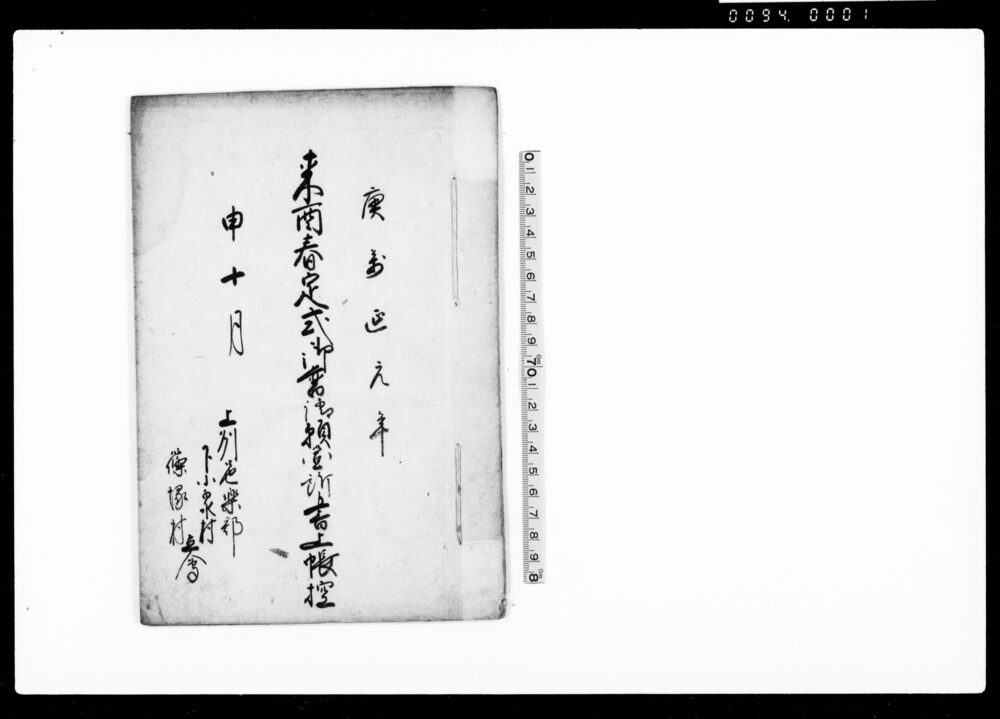 0094.0001
庚萬延元年
来酉春定式御普請願箇所書上帳控
申十月
上州邑楽郡
下小泉村
篠塚村
立会
0 1 2 3 4 5 6 7 8 9 10 1 2 3 4 5 6 7 8 9 8